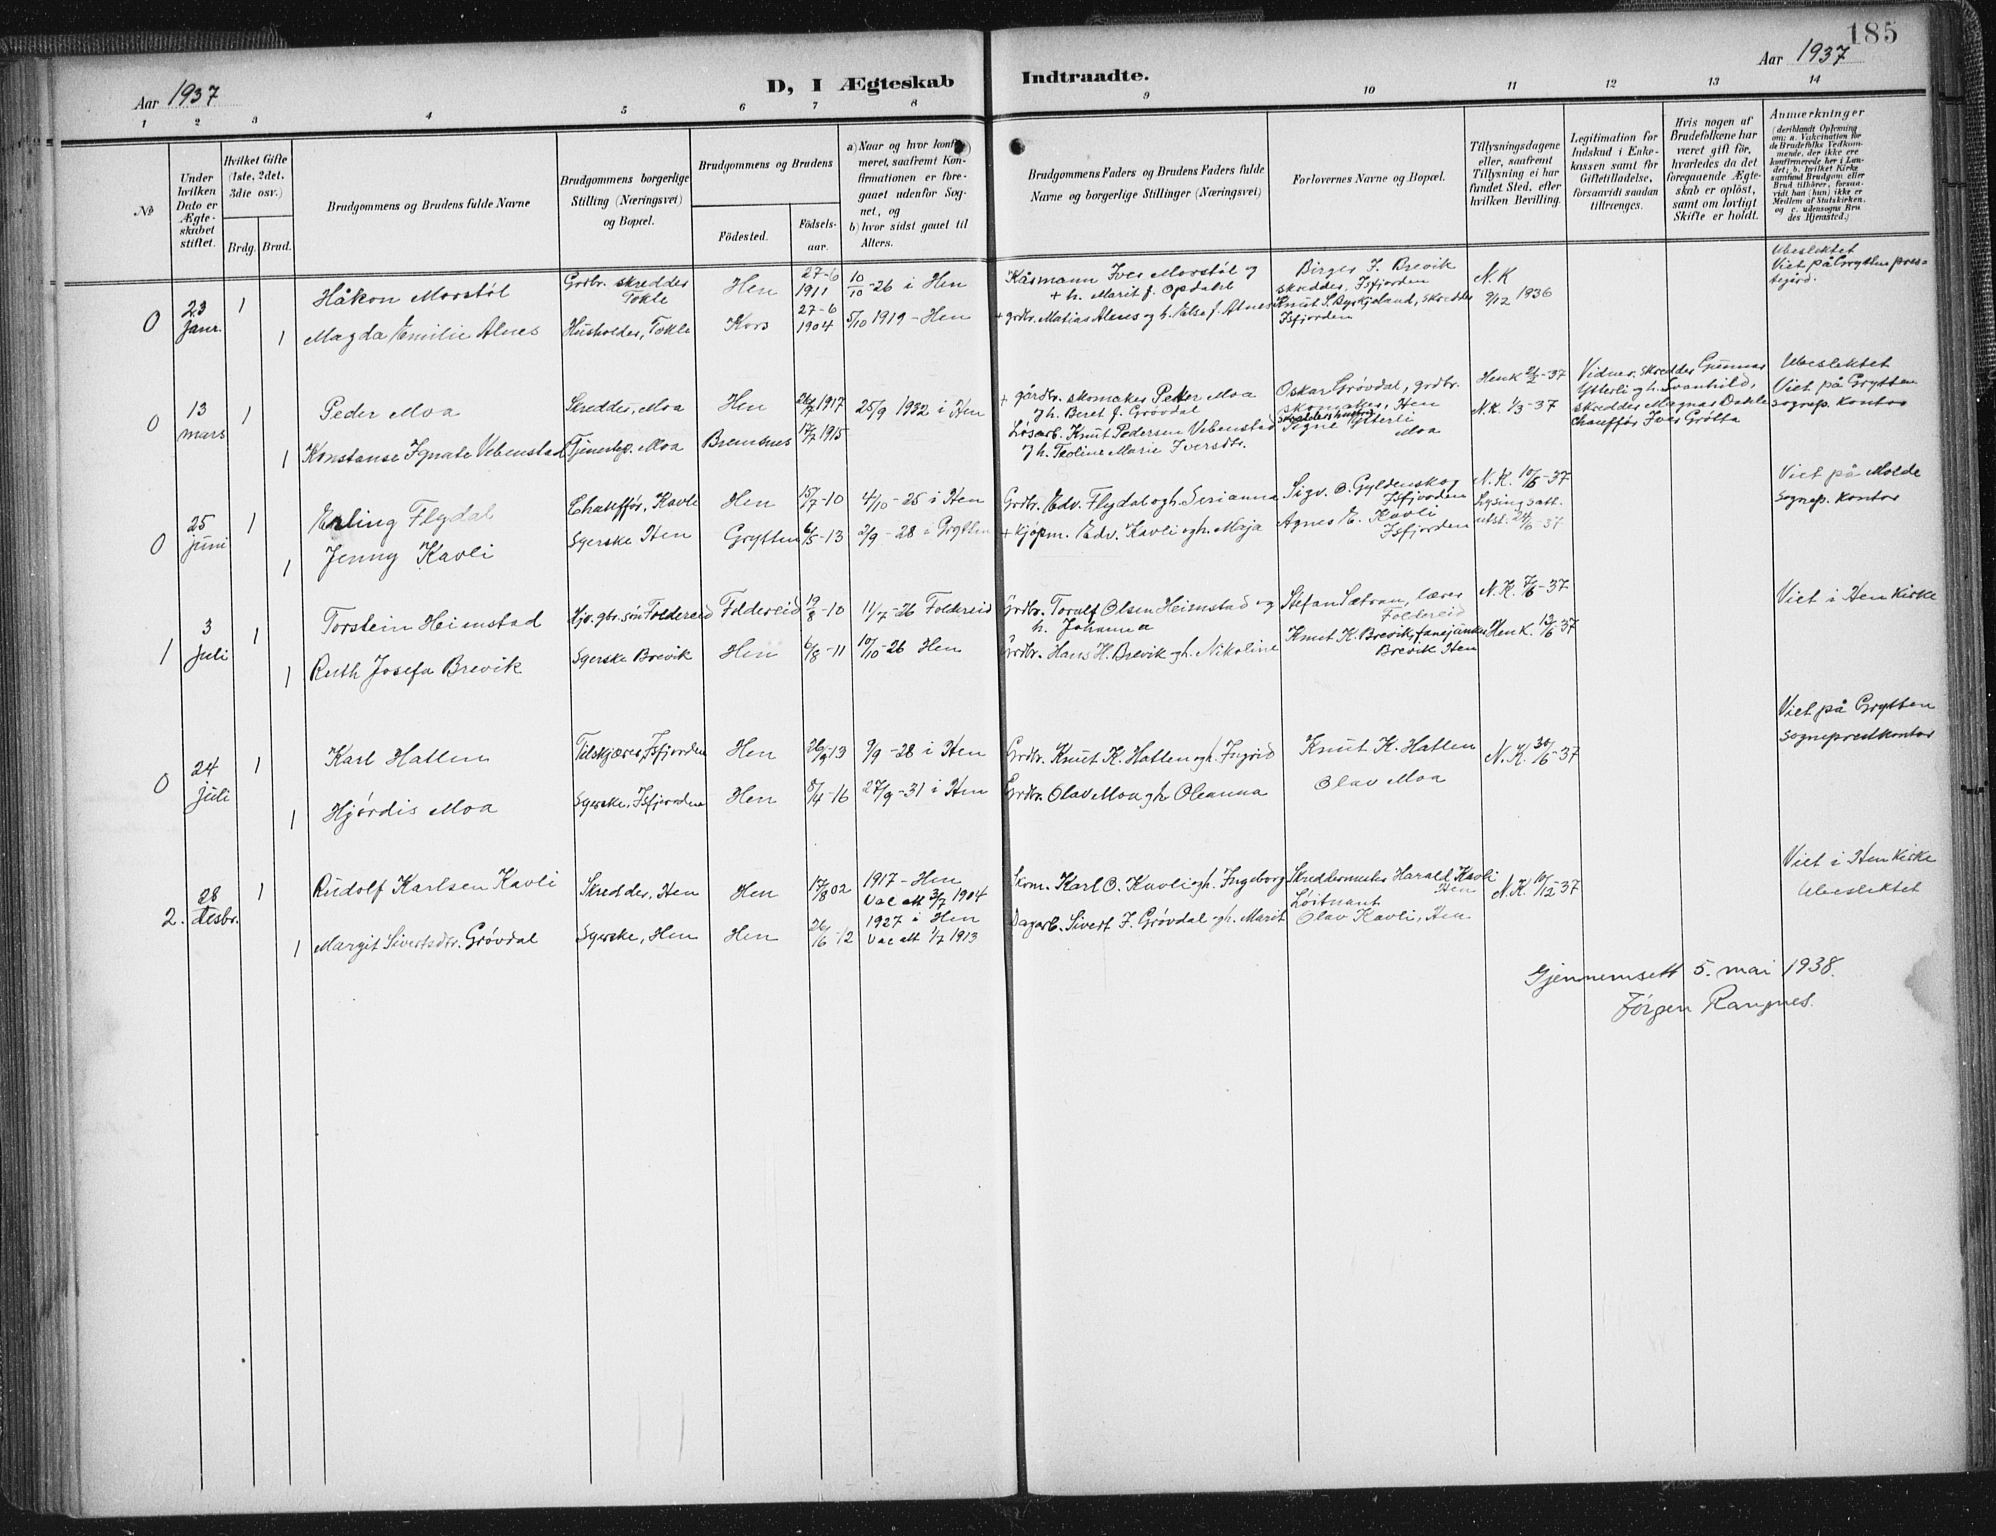 185
Aar 1937
D, I Ægteskab Indtraadte.
Aar 1937
1 2 3 4 5 6 7 8 9 10 11 12 13 14
No
Under hvilken Dato er Ægteskabet stiftet.
Hvilket Gifte (1ste, 2det, 3die osv.)
Brdg. Brud.
Brudgommens og Brudens fulde Navne
Brudgommens borgerlige Stilling (Næringsvei) og Bopæl.
Brudgommens og Brudens
Födested. Födselsaar.
a) Naar og hvor konfirmeret, saafremt Konfirmationen er foregaaet udenfor Sognet, og
b) hvor sidst gaaet til Alters.
Brudgommens Faders og Brudens Faders fulde Navne og borgerlige Stillinger (Næringsvei)
Forlovernes Navne og Bopæl.
Tillysningsdagene eller, saafremt Tillysning ei har fundet Sted, efter hvilken Bevilling.
Legitimation for Indskud i Enkekassen samt for Giftetilladelse, forsaavidt saadan tiltrænges.
Hvis nogen af Brudefolkene har været gift før, hvorledes da det foregaaende Ægteskab er oplöst, samt om lovligt Skifte er holdt.
Anmærkninger
(deriblandt Oplysning om: a. Vakcination for de Brudefolks Vedkommende, der ikke ere konfirmerede her i Landet; b. hvilket Kirkesamfund Brudgom eller Brud tilhører, forsaavidt han (hun) ikke er Medlem af Statskirken, og c. udensogns Brudes Hjemsted.)
0 23 Janr. 1 Håkon Morstøl Grdbr. skredder Tokle Hen 27-6 1911 10/10 -26 i Hen Kåsmann Iver Morstøl og + h. Marit f. Opdahl Birger J. Brevik skredder, Isfjorden N.K 9/12 1936 Ubeslektet Viet på Grytten prestegjerd.
1 Magda Emilie Alnes Husholder, Tokle Kors 27-6 1904 5/10 1919 - Hen + grdbr. Matias Alnes og h. Else f. Alnes Knut S. Dyskjeland, skredder Isfjorden
0 13 mars 1 Peder Moa Skredder, Moa Hen 26/7 1917 25/9 1932 i Hen + gårdbr. skomaker Petter Moa og h. Beret f. Grøvdal Oskar Grøvdal, grdbr. skomaker, Hen Hen K 21/2-37 Vidner: skredder Gunnar Ytterli og h. Svanhild, skredder Magnas Dahle chauffør Iver Grøtta Ubeslektet Viet på Grytten sognep. kontor
1 Konstanse Ignate Vebenstad Tjenestep. Moa Bremsnes 17/7 1915 Løsarb. Knut Pedersen Vebenstad og h. Taoline Marie Iversdtr. skredders hustru Signe Ytterli Moa N.K. 1/3-37
0 25 juni 1 Erling Flydal Chauffør, Kavli Hen 15/7-10 4/10-25 i Hen Grdbr. Edv. Flydal og h. Serianna Sigv. O. Gyldenskog Isfjorden N.K. 10/6-37 Viet på Molde sognep. kontor
1 Jenny Kavli Syerske Hen Grytten 6/5-13 2/9-28 i Grytten + kjøpm. Edv. Kavli og h. Maja Agnes E. Kavli Isfjorden Lysingsatt. utst. 24/6-37
1 3 juli 1 Torstein Heimstad Hjv. gbr. søn Foldereid Foldereid 19/8-10 11/7-26 Foldereid Grdbr. Toralf Olsen Heimstad og h. Johanna Stefan Sætran, lærer Foldereid N.K. 7/6-37 Viet i Hen kirke
1 Ruth Josefa Brevik Syerske Brevik Hen 6/8-11 10/10-26 Hen Grdbr. Hans H. Brevik og h. Nikoline Knut K. Brevik, fanejunker Brevik Hen Hen K. 12/6-37
0 24 juli 1 Karl Hatlen Tilskjærer, Isfjorden Hen 26/9-13 9/9-28 i Hen Grdbr. Knut K. Hatlen og h. Ingrid Knut K. Hatlen N.K. 30/6-37 Viet på Grytten sogneprestkontor
1 Hjørdis Moa Syerske, Isfjorden Hen 8/4-16 27/9-31 i Hen Grdbr. Olav Moa og h Oleanna Olav Moa
2. 28 desbr. 1 Rudolf Karlsen Kavli Skredder, Hen Hen 17/8 02 1917 - Hen Vac att 3/7 1904 Skom. Karl O. Kavli og h. Ingeborg Skreddermester Harald Kavli Hen N.K. 10/12-37 Viet i Hen kirke Ubeslektet
1 Margit Sivertsdtr. Grøvdal Syerske, Hen Hen 26/6-12 1927 i Hen Vac att 1/7 1913 Dagarb. Sivert J. Grøvdal og h. Marit Løitnant Olav Kavli, Hen
Gjennemsett 5. mai 1938.
Jørgen Rangnes.